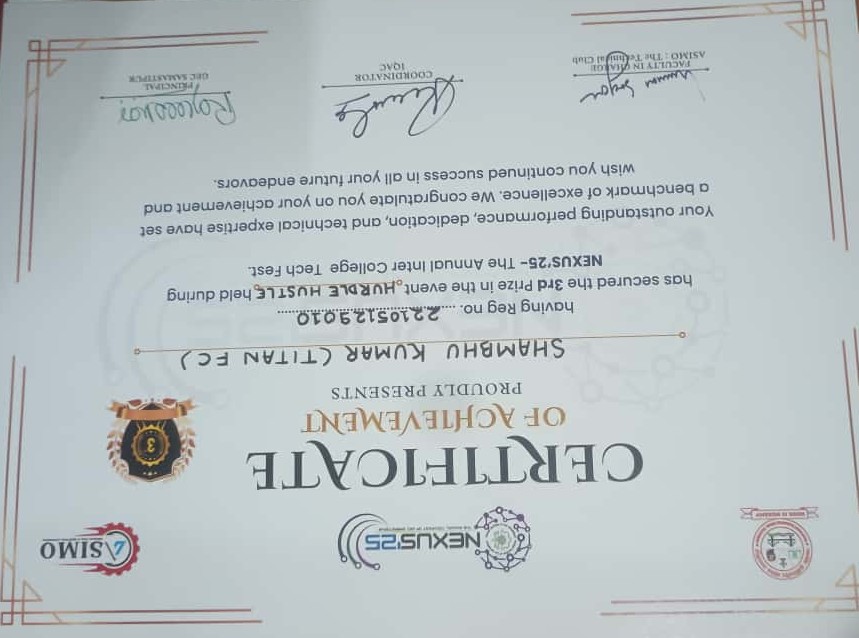 NEXUS'25
ASIMO
WORK IS WORSHIP
CERTIFICATE
OF ACHIEVEMENT
3
PROUDLY PRESENTS
SHAMBHU KUMAR (TITAN FC)
having Reg no. ....22105129010.....
has secured the 3rd Prize in the event HURDLE HUSTLE held during
NEXUS'25- The Annual Inter College Tech Fest.
Your outstanding performance, dedication, and technical expertise have set
a benchmark of excellence. We congratulate you on your achievement and
wish you continued success in all your future endeavors.
FACULTY IN CHARGE
ASIMO : The Technical Club
COORDINATOR
IQAC
PRINCIPAL
GEC SAMASTIPUR